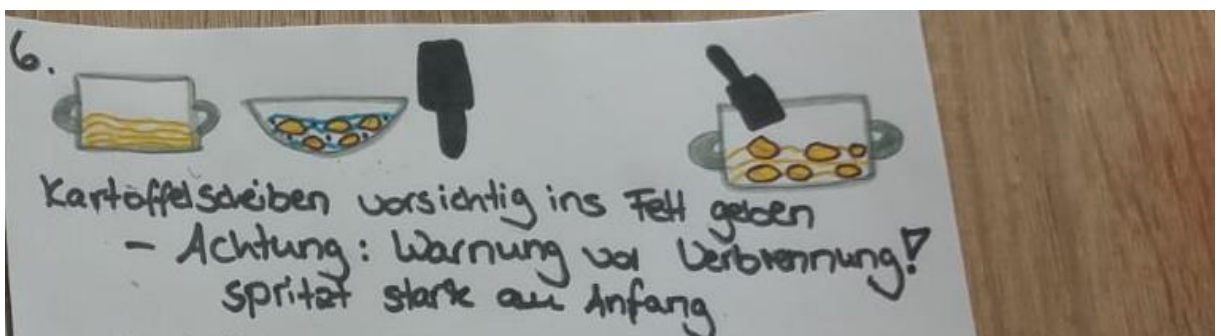 6.
Kartoffelscheiben vorsichtig ins Fett geben
- Achtung: Warnung vor Verbrennung!
spritzt stark am Anfang